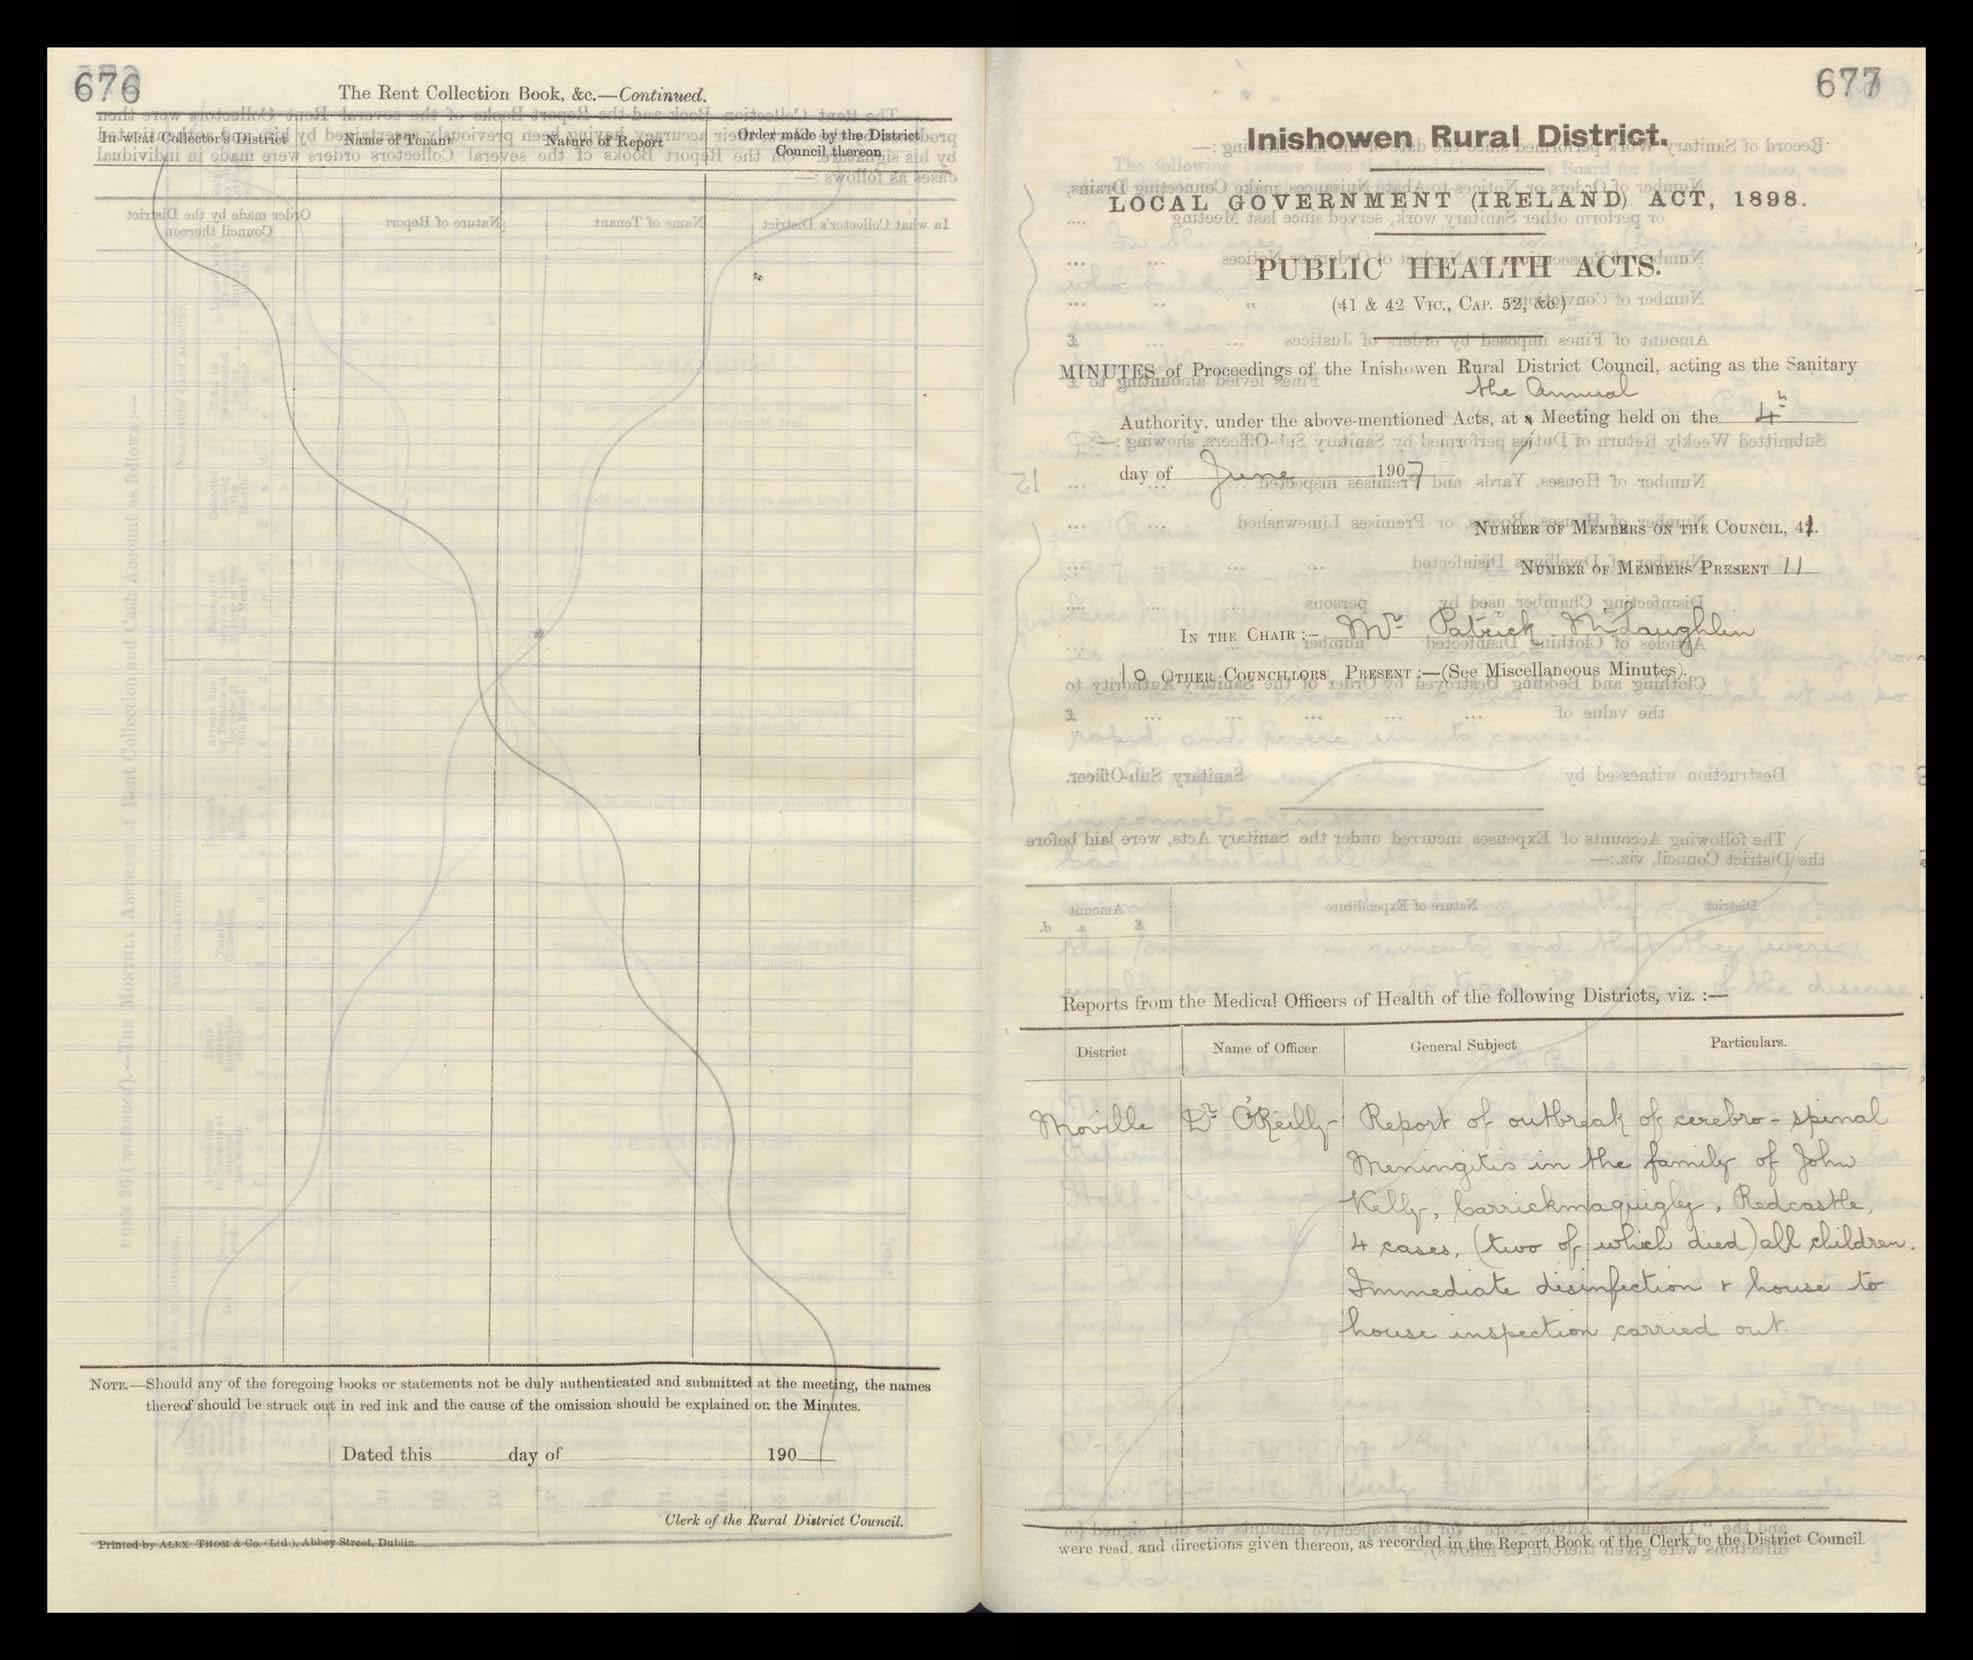 676
The Rent Collection Book, &c.—Continued.
In what Collector's District	Name of Tenant	Nature of Report	Order made by the District
Council thereon
NOTE.—Should any of the foregoing books or statements not be duly authenticated and submitted at the meeting, the names
thereof should be struck out in red ink and the cause of the omission should be explained on the Minutes.
Dated this day of 190
Clerk of the Rural District Council.
Printed by ALEX. THOM & Co. (Ltd.), Abbey Street, Dublin.
677
Inishowen Rural District.
LOCAL GOVERNMENT (IRELAND) ACT, 1898.
PUBLIC HEALTH ACTS.
(41 & 42 VIC., CAP. 52, &c.)
MINUTES of Proceedings of the Inishowen Rural District Council, acting as the Sanitary
the Annual
Authority, under the above-mentioned Acts, at a Meeting held on the 4th
day of June 1907
NUMBER OF MEMBERS ON THE COUNCIL, 41.
NUMBER OF MEMBERS PRESENT 11
IN THE CHAIR :— Mr Patrick McLaughlin
10 OTHER COUNCILLORS PRESENT :—(See Miscellaneous Minutes).
Reports from the Medical Officers of Health of the following Districts, viz. :—
District	Name of Officer	General Subject	Particulars.
Moville Dr O'Reilly Report of outbreak of cerebro-spinal
Meningitis in the family of John
Kelly, Carrickmaquigley, Redcastle,
4 cases, (two of which died) all children.
Immediate disinfection & house to
house inspection carried out.
were read, and directions given thereon, as recorded in the Report Book of the Clerk to the District Council